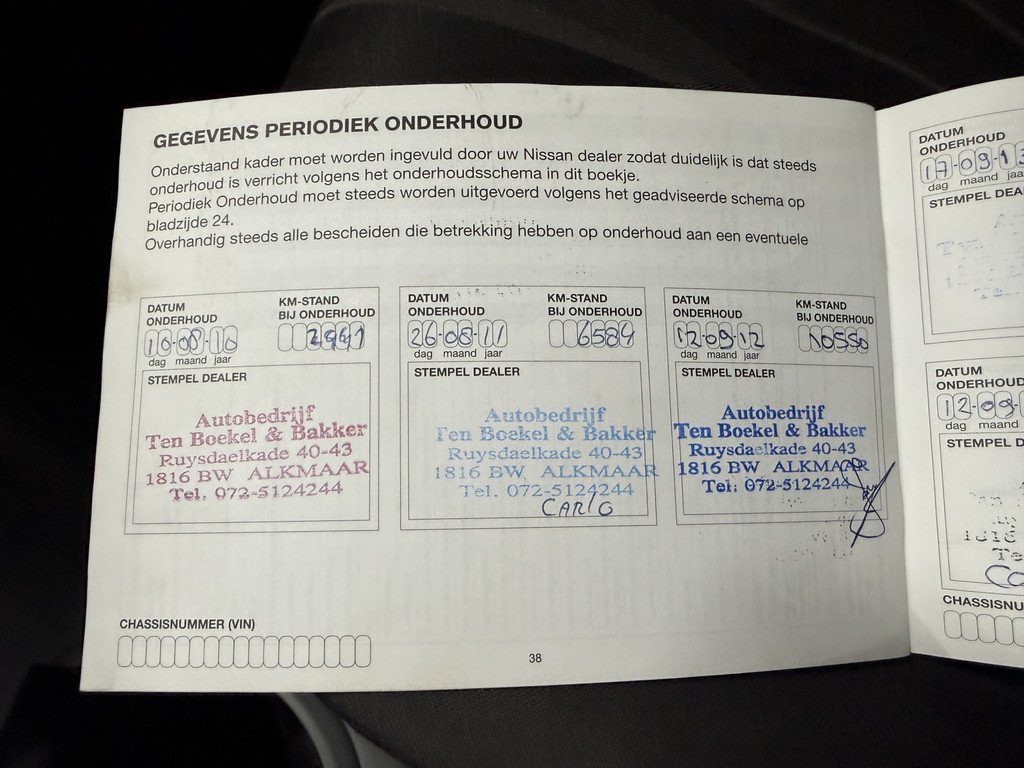 GEGEVENS PERIODIEK ONDERHOUD
Onderstaand kader moet worden ingevuld door uw Nissan dealer zodat duidelijk is dat steeds
onderhoud is verricht volgens het onderhoudsschema in dit boekje.
Periodiek Onderhoud moet steeds worden uitgevoerd volgens het geadviseerde schema op
bladzijde 24.
Overhandig steeds alle bescheiden die betrekking hebben op onderhoud aan een eventuele
DATUM
ONDERHOUD
KM-STAND
BIJ ONDERHOUD
10-08-10
2961
dag maand jaar
STEMPEL DEALER
Autobedrijf
Ten Boekel & Bakker
Ruysdaelkade 40-43
1816 BW ALKMAAR
Tel. 072-5124244
DATUM
ONDERHOUD
KM-STAND
BIJ ONDERHOUD
26-08-11
6584
dag maand jaar
STEMPEL DEALER
Autobedrijf
Ten Boekel & Bakker
Ruysdaelkade 40-43
1816 BW ALKMAAR
Tel. 072-5124244
CARLO
DATUM
ONDERHOUD
KM-STAND
BIJ ONDERHOUD
12-09-12
10550
dag maand jaar
STEMPEL DEALER
Autobedrijf
Ten Boekel & Bakker
Ruysdaelkade 40-43
1816 BW ALKMAAR
Tel: 072-5124244
CHASSISNUMMER (VIN)
38
DATUM
ONDERHOUD
17-09-13
dag maand jaa
STEMPEL DEA
DATUM
ONDERHOUD
12-09-
dag maand
STEMPEL D
1816
Te
Ca
CHASSISNU